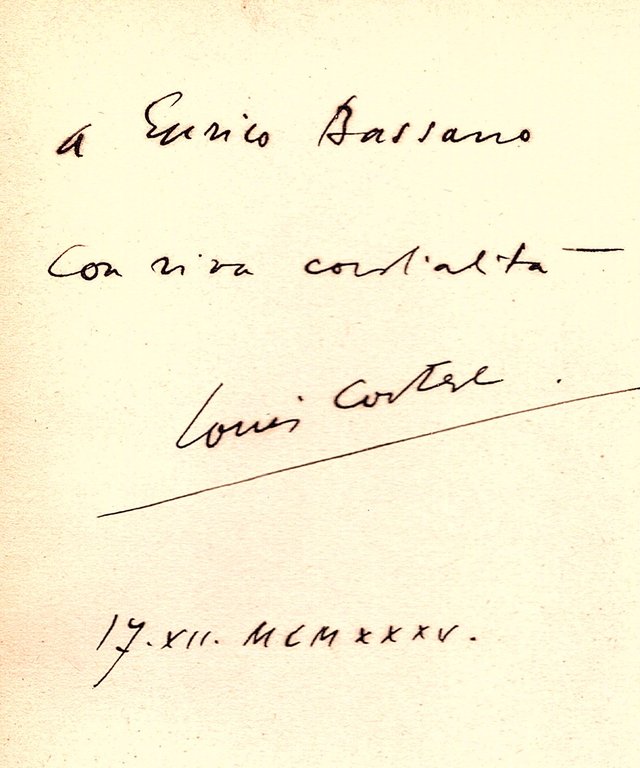 a Enrico Bassano
Con viva cordialità
Louis Cortese.
17.XII.MCMXXXV.